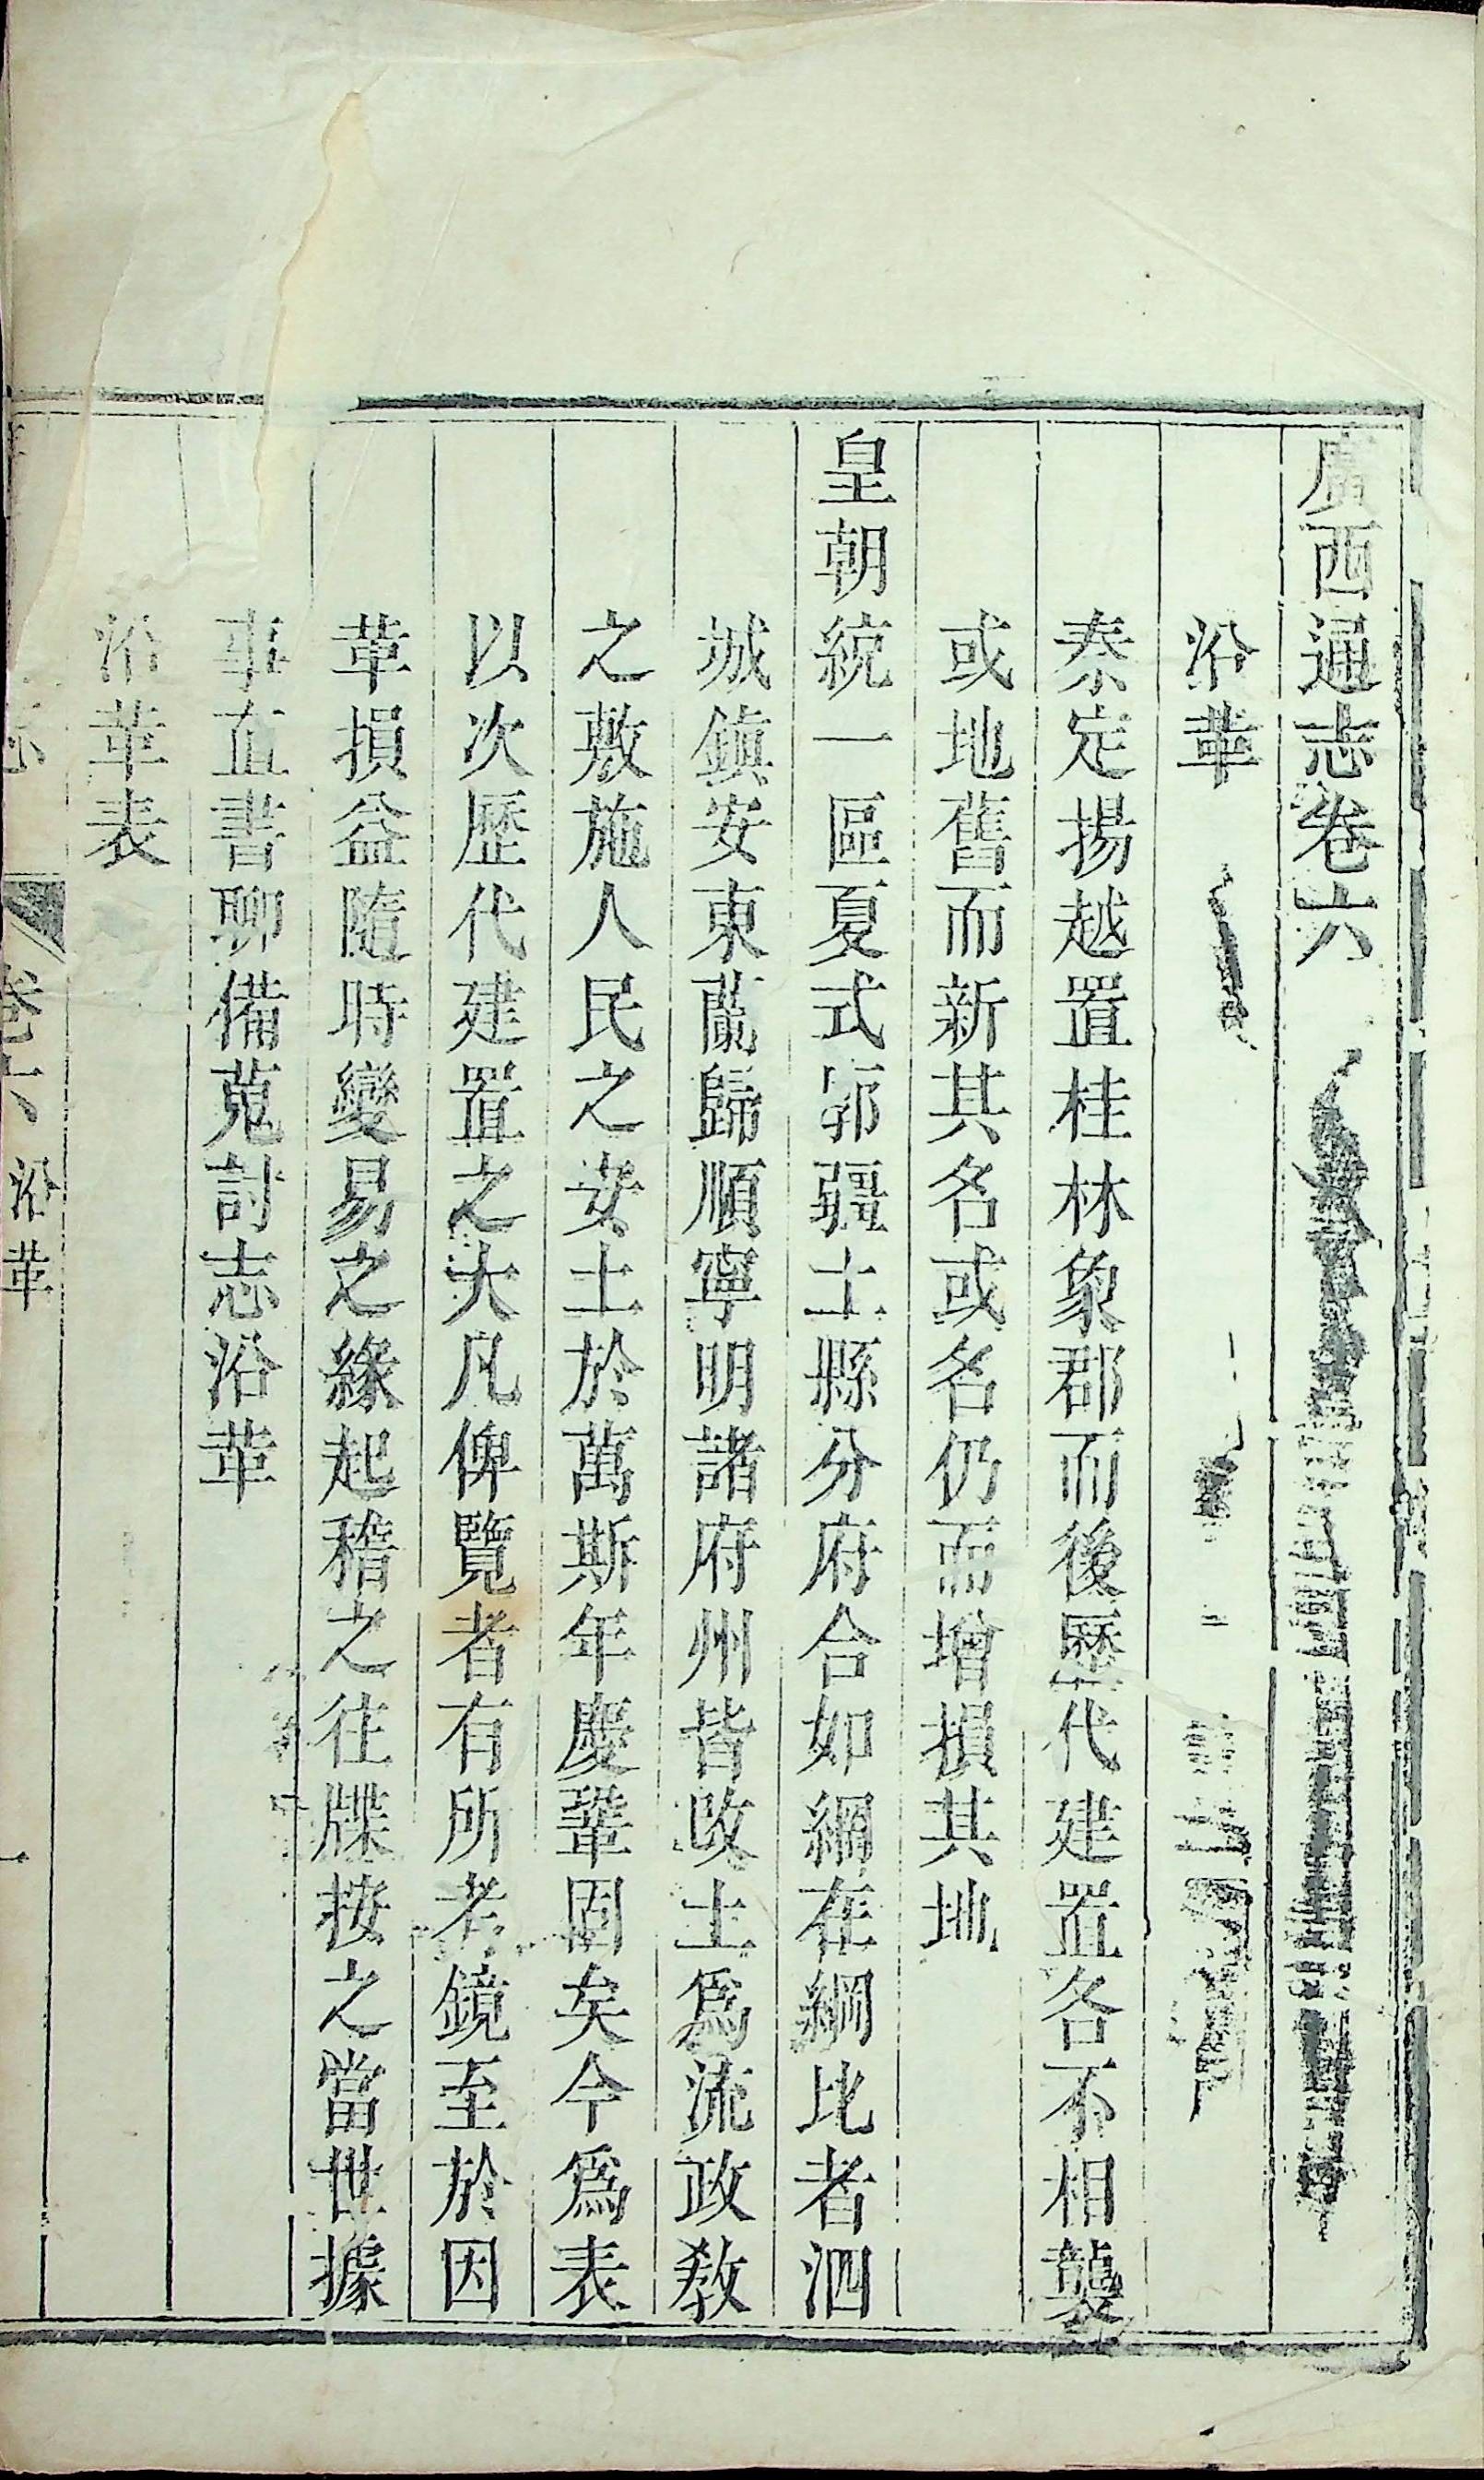 廣西通志卷六
沿革
秦定揚越置桂林象郡而後歷代建置各不相襲
或地舊而新其名或名仍而增損其地
皇朝統一區夏式郭疆土縣分府合如網在綱比者泗
城鎮安東蘭歸順寧明諸府州皆改土爲流政教
之敷施人民之安土於萬斯年慶鞏固矣今爲表
以次歷代建置之大凡俾覽者有所考鏡至於因
革損益隨時變易之緣起稽之往牒按之當世據
事直書聊備蒐討志沿革
沿革表
卷六 沿革
一